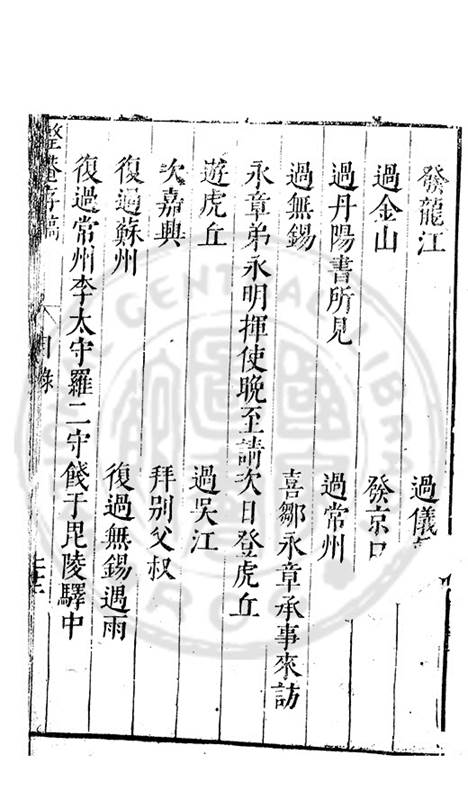 發龍江 過儀
過金山 發京口
過丹陽書所見 過常州
過無錫 喜鄒永章承事來訪
永章弟永明揮使晚至請次日登虎丘
遊虎丘 過吳江
次嘉興 拜別父叔
復過蘇州 復過無錫遇雨
復過常州李太守羅二守餞于毘陵驛中
整菴存稿 目錄